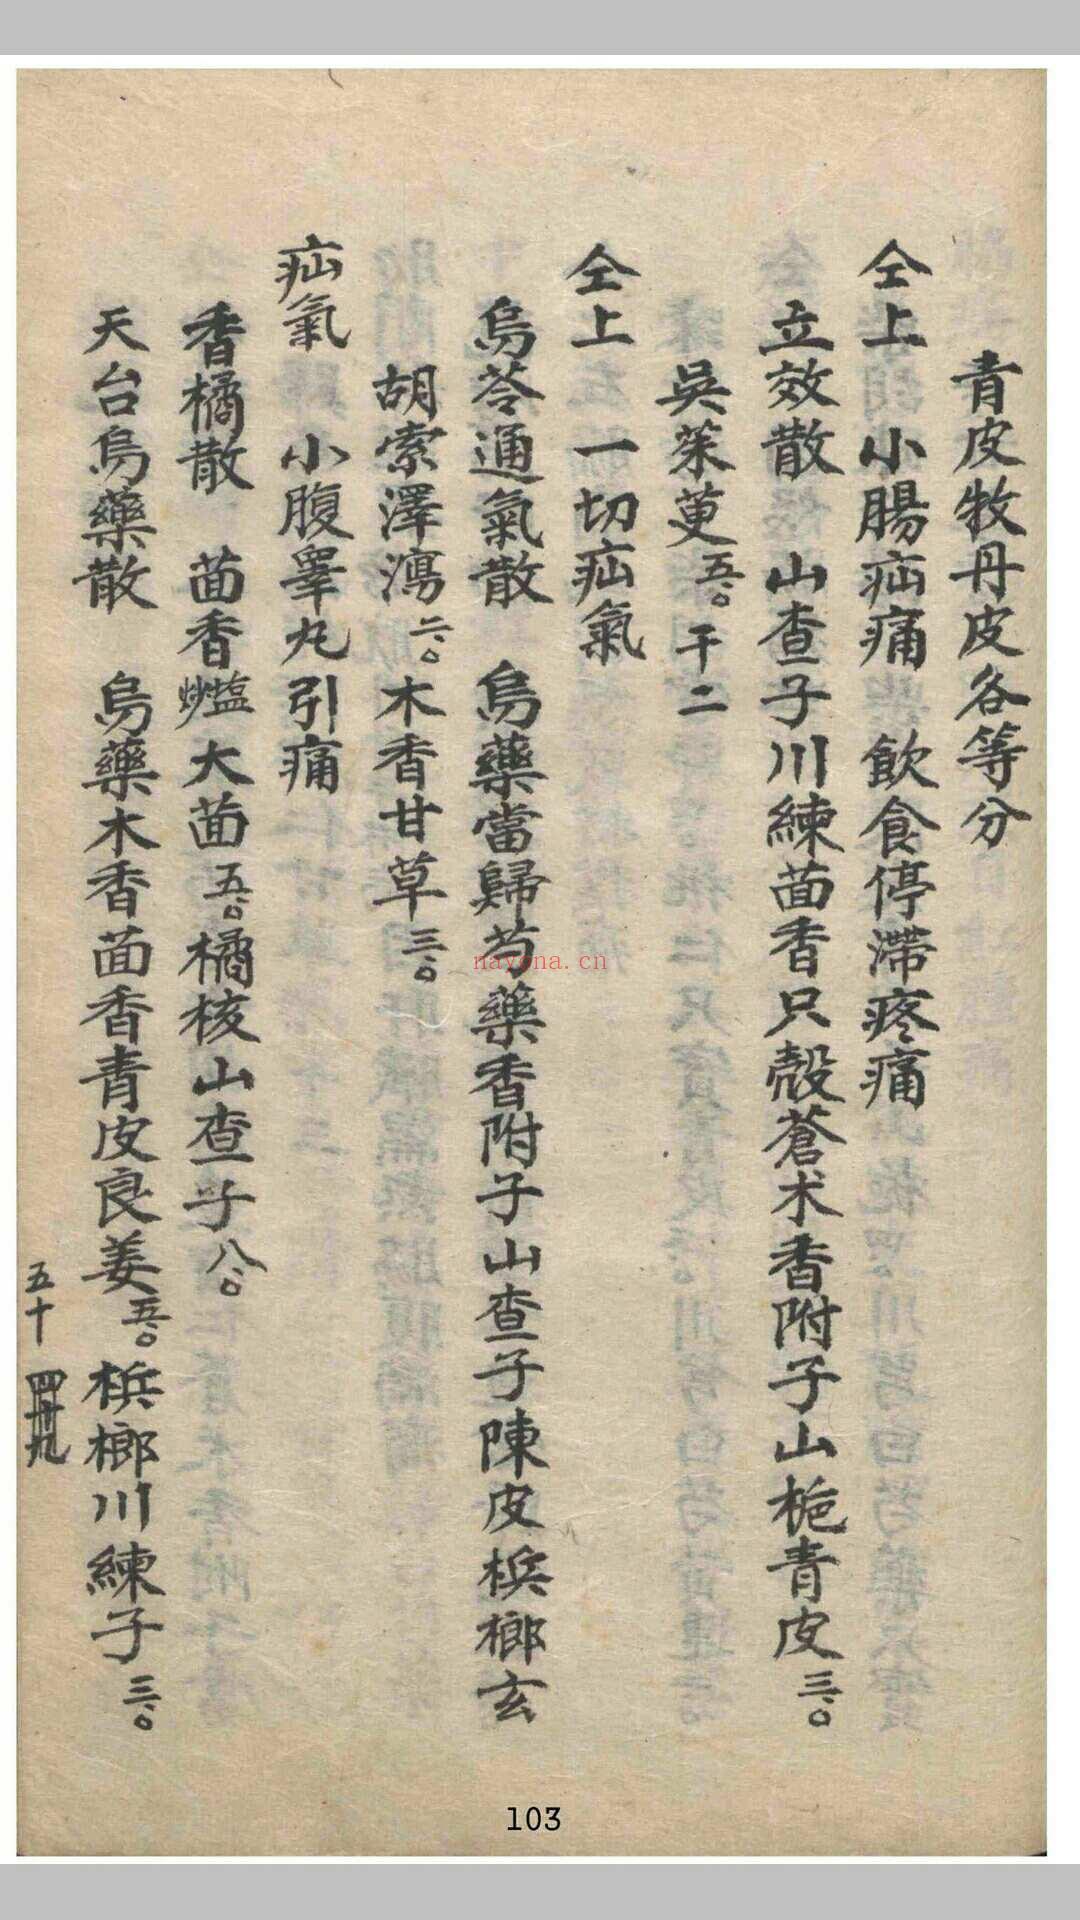 青皮牧丹皮各等分
仝上　小腸疝痛　飲食停滯疼痛
立效散　山查子川練茴香只殼蒼术香附子山梔青皮三、〇
吳茱萸五、〇　干二
仝上　一切疝氣
烏苓通氣散　烏藥當歸芍藥香附子山查子陳皮梹榔玄
胡索澤瀉二、〇木香甘草三、〇
疝氣　小腹睾丸引痛
香橘散　茴香炒塩大茴五、〇橘核山查子八、〇
天台烏藥散　烏藥木香茴香青皮良姜五、〇梹榔川練子三、〇
五十
103
nayona.cn